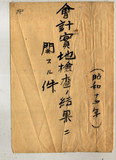 (昭和十五年)
會計實地檢査ノ結果ニ
関スル件